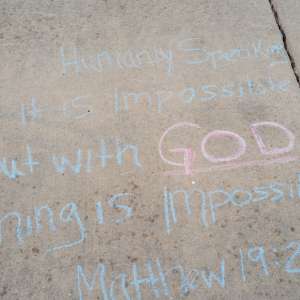 Humanly Speaking
it is Impossible
but with GOD
hing is Impossi
Matthew 19:2